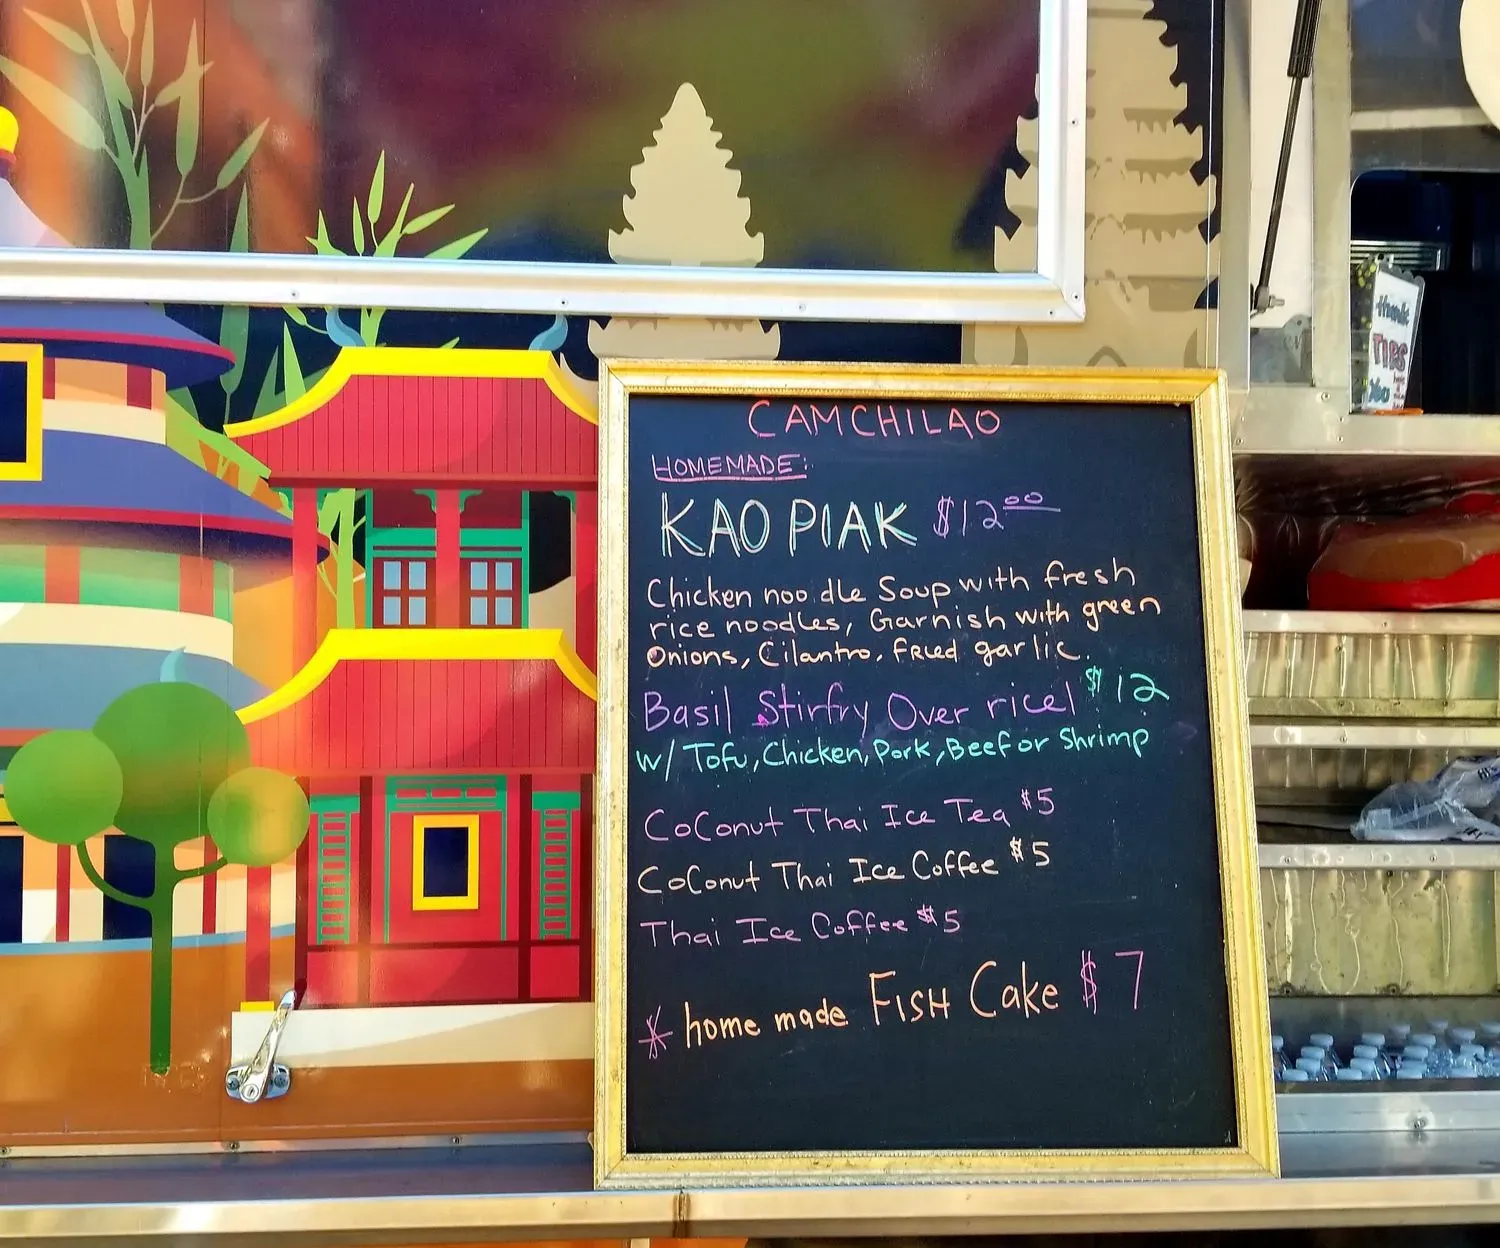 CAMCHILAO
HOMEMADE:
KAO PIAK $12.00
Chicken noodle Soup with fresh
rice noodles, Garnish with green
Onions, Cilantro, fried garlic.
Basil Stirfry Over rice! $12
w/ Tofu, Chicken, Pork, Beef or Shrimp
CoConut Thai Ice Tea $5
CoConut Thai Ice Coffee $5
Thai Ice Coffee $5
* home made FISH Cake $7
thank
TIPS
You